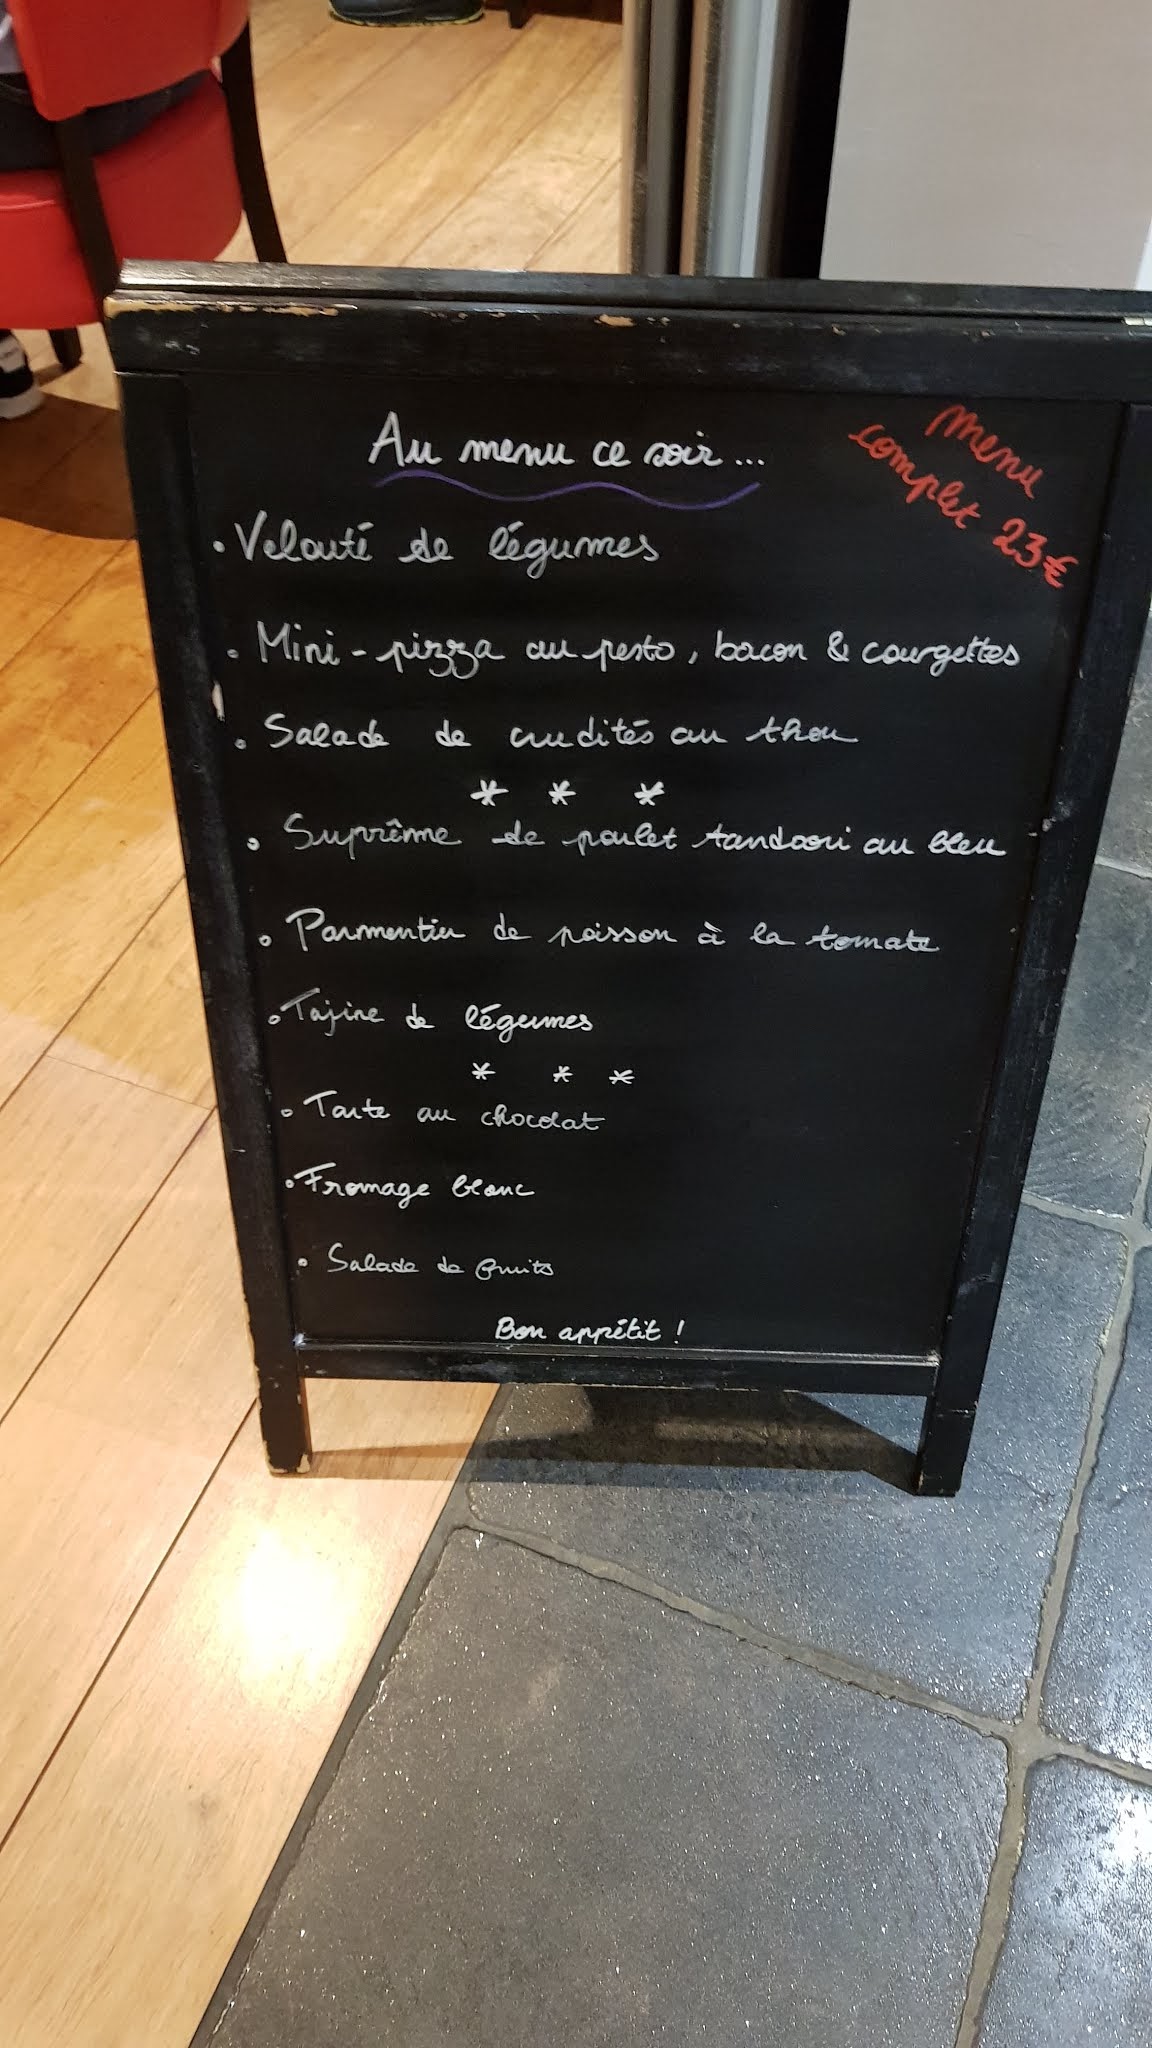 Au menu ce soir...
Menu
complet 23€
• Velouté de légumes
• Mini-pizza au pesto, bacon & courgettes
• Salade de crudités au thon
* * *
• Suprême de poulet tandoori au bleu
• Parmentier de poisson à la tomate
• Tajine de légumes
* * *
• Tarte au chocolat
• Fromage blanc
• Salade de fruits
Bon appétit !